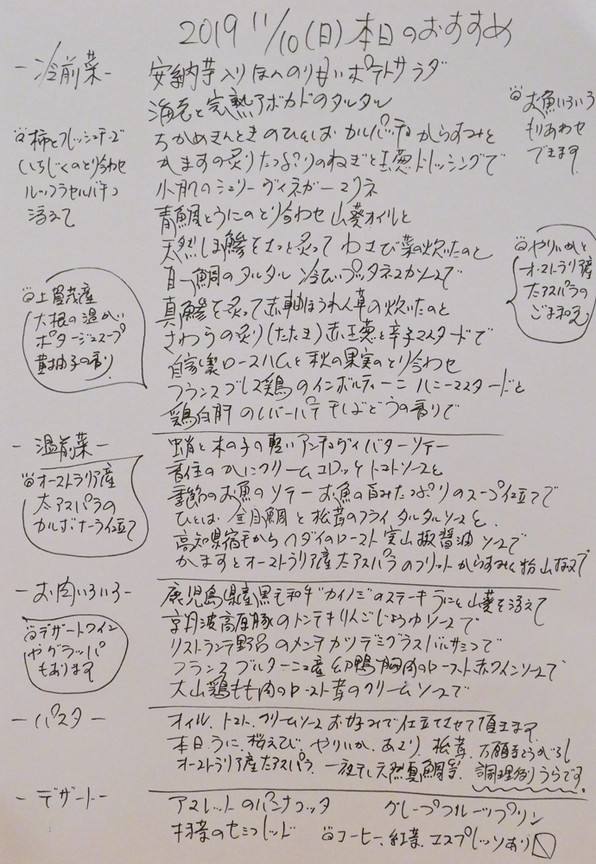 2019 11/10(日)本日のおすすめ
-冷前菜-
安納芋入りほんのり甘いポテトサラダ
海老と完熟アボカドのタルタル
ちかめきんときのひとしお カルパッチョ からすみと
かますの炙り たっぷりのねぎと玉葱ドレッシングで
小肌のシェリーヴィネガーマリネ
青鯛とうにのとり合わせ 山葵オイルと
天然しま鯵をさっと炙って わさび菜の炊いたのと
真鯛のタルタル 冷たいプッタネスカソースで
真鯵を炙って赤軸ほうれん草の炊いたのと
さわらの炙り(たたき)赤玉葱と辛子マスタードで
自家製ロースハムと秋の果実のとり合わせ
フランスブレス鶏のインボルティーニ ハニーマスタードと
鶏白肝のレバーパテ 干しぶどうの香りで
柿とフレッシュチーズ
いちじくのとり合わせ
ルーッコラセルバチコ
添えて
お魚いろいろ
もりあわせ
できます
やりいかと
オーストラリア産
太アスパラの
ごま和え
上賀茂産
大根の温かい
ポタージュスープ
黄柚子の香り
-温前菜-
蛸と木の子の軽いアンチョヴィバターソテー
香住のかにクリームコロッケ トマトソースと
季節のお魚のソテー お魚の旨みたっぷりのスープ仕立てで
ひとしお 金目鯛と松茸のフライ タルタルソースと
高知県宿毛からハダイのロースト 実山椒醤油ソースで
かますとオーストラリア産太アスパラのフリット からすみと粉山椒で
オーストラリア産
太アスパラの
カルボナーラ仕立て
-お肉いろいろ-
鹿児島県産黒毛和牛"カイノミ"のステーキ うにと山葵を添えて
京丹波高原豚のトンテキ りんごじょうゆソースで
リストランテ野呂のメンチカツ デミグラスバルサミコで
フランスブルターニュ産幼鴨胸肉のロースト 赤ワインソースで
大山鶏もも肉のロースト 茸のクリームソースで
デザートワイン
やグラッパ
もあります
-パスタ-
オイル、トマト、クリームソース お好みで仕立てさせて頂きます
本日 うに、桜えび、やりいか、あさり、松茸、万願寺とうがらし
オーストラリア産太アスパラ、一夜干し天然真鯛等、調理例うらです。
-デザート-
アメレットのパンナコッタ グレープフルーツプリン
抹茶のセミフレッド コーヒー、紅茶、エスプレッソあり